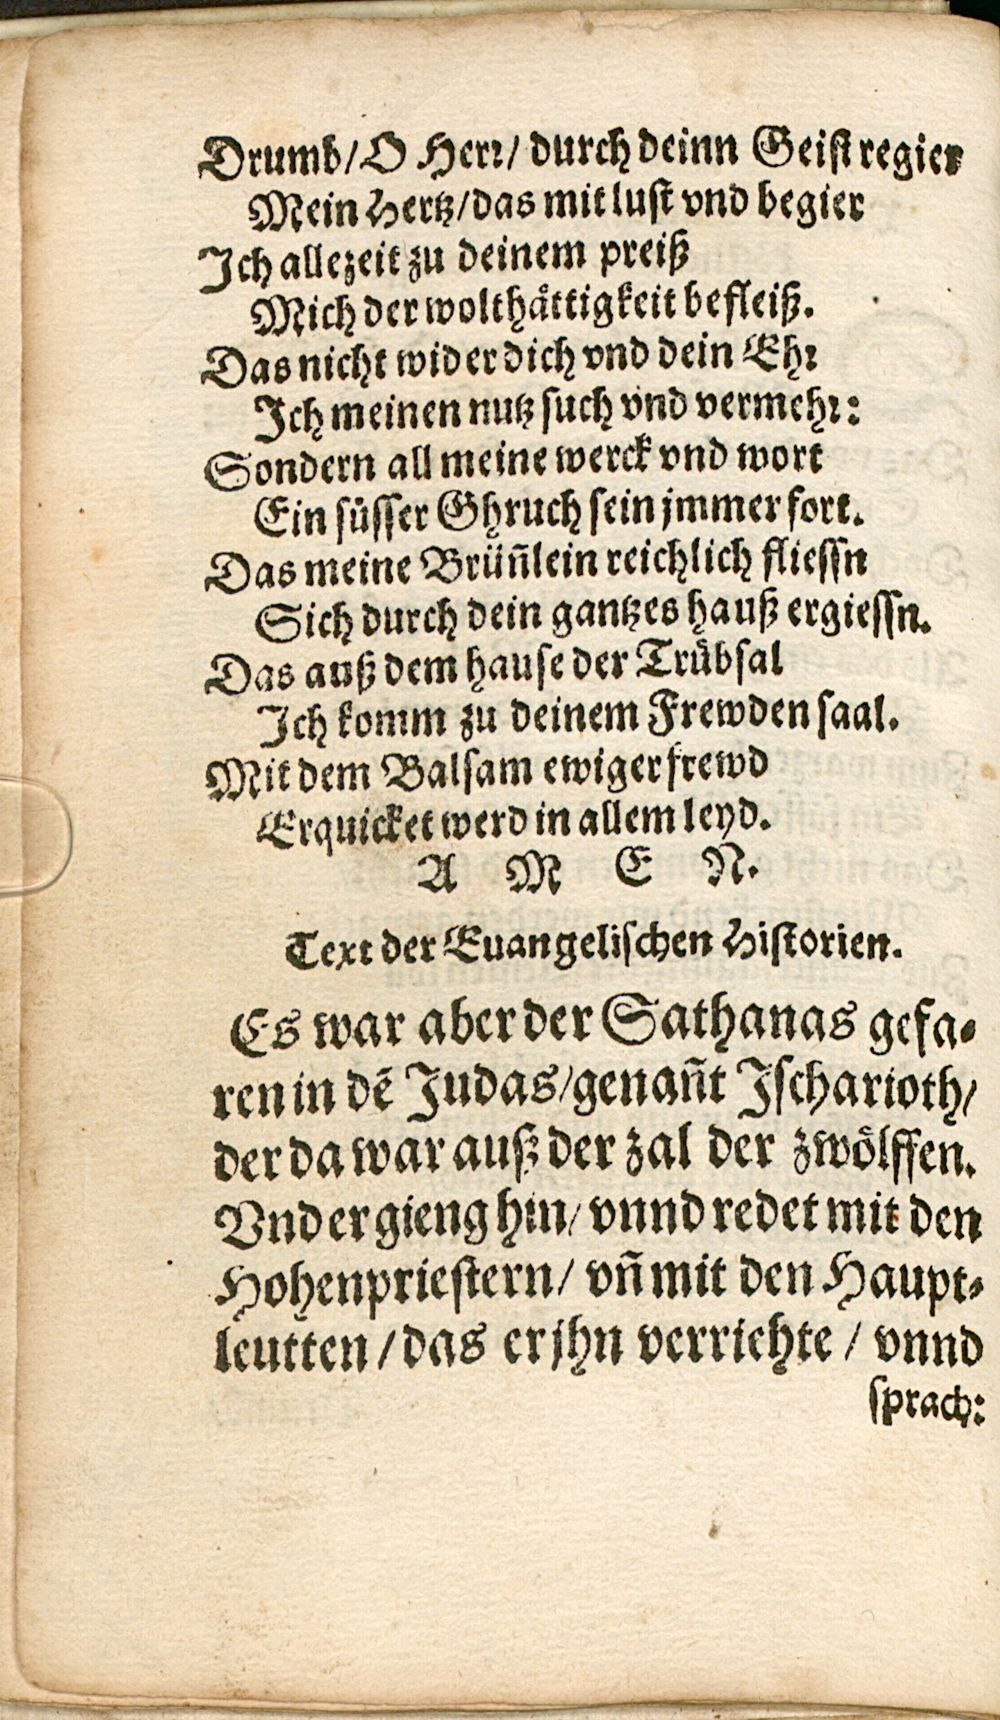 Drumb/ O Herr/ durch deinn Geist regier
Mein Hertz/ das mit lust vnd begier
Ich allezeit zu deinem preiß
Mich der wolthättigkeit befleiß.
Das nicht wider dich vnd dein Ehr
Ich meinen nutz such vnd vermehr:
Sondern all meine werck vnd wort
Ein süsser Ghruch sein jmmer fort.
Das meine Brüñlein reichlich fliessn
Sich durch dein gantzes hauß ergiessn.
Das auß dem hause der Trübsal
Ich komm zu deinem Frewden saal.
Mit dem Balsam ewiger frewd
Erquicket werd in allem leyd.
A M E N.
Text der Euangelischen Historien.
Es war aber der Sathanas gefa-
ren in dẽ Judas/ genañt Jscharioth/
der da war auß der zal der zwölffen.
Vnd er gieng hin/ vnnd redet mit den
Hohenpriestern/ vñ mit den Haupt-
leutten/ das er jhn verriehte/ vnnd
sprach: